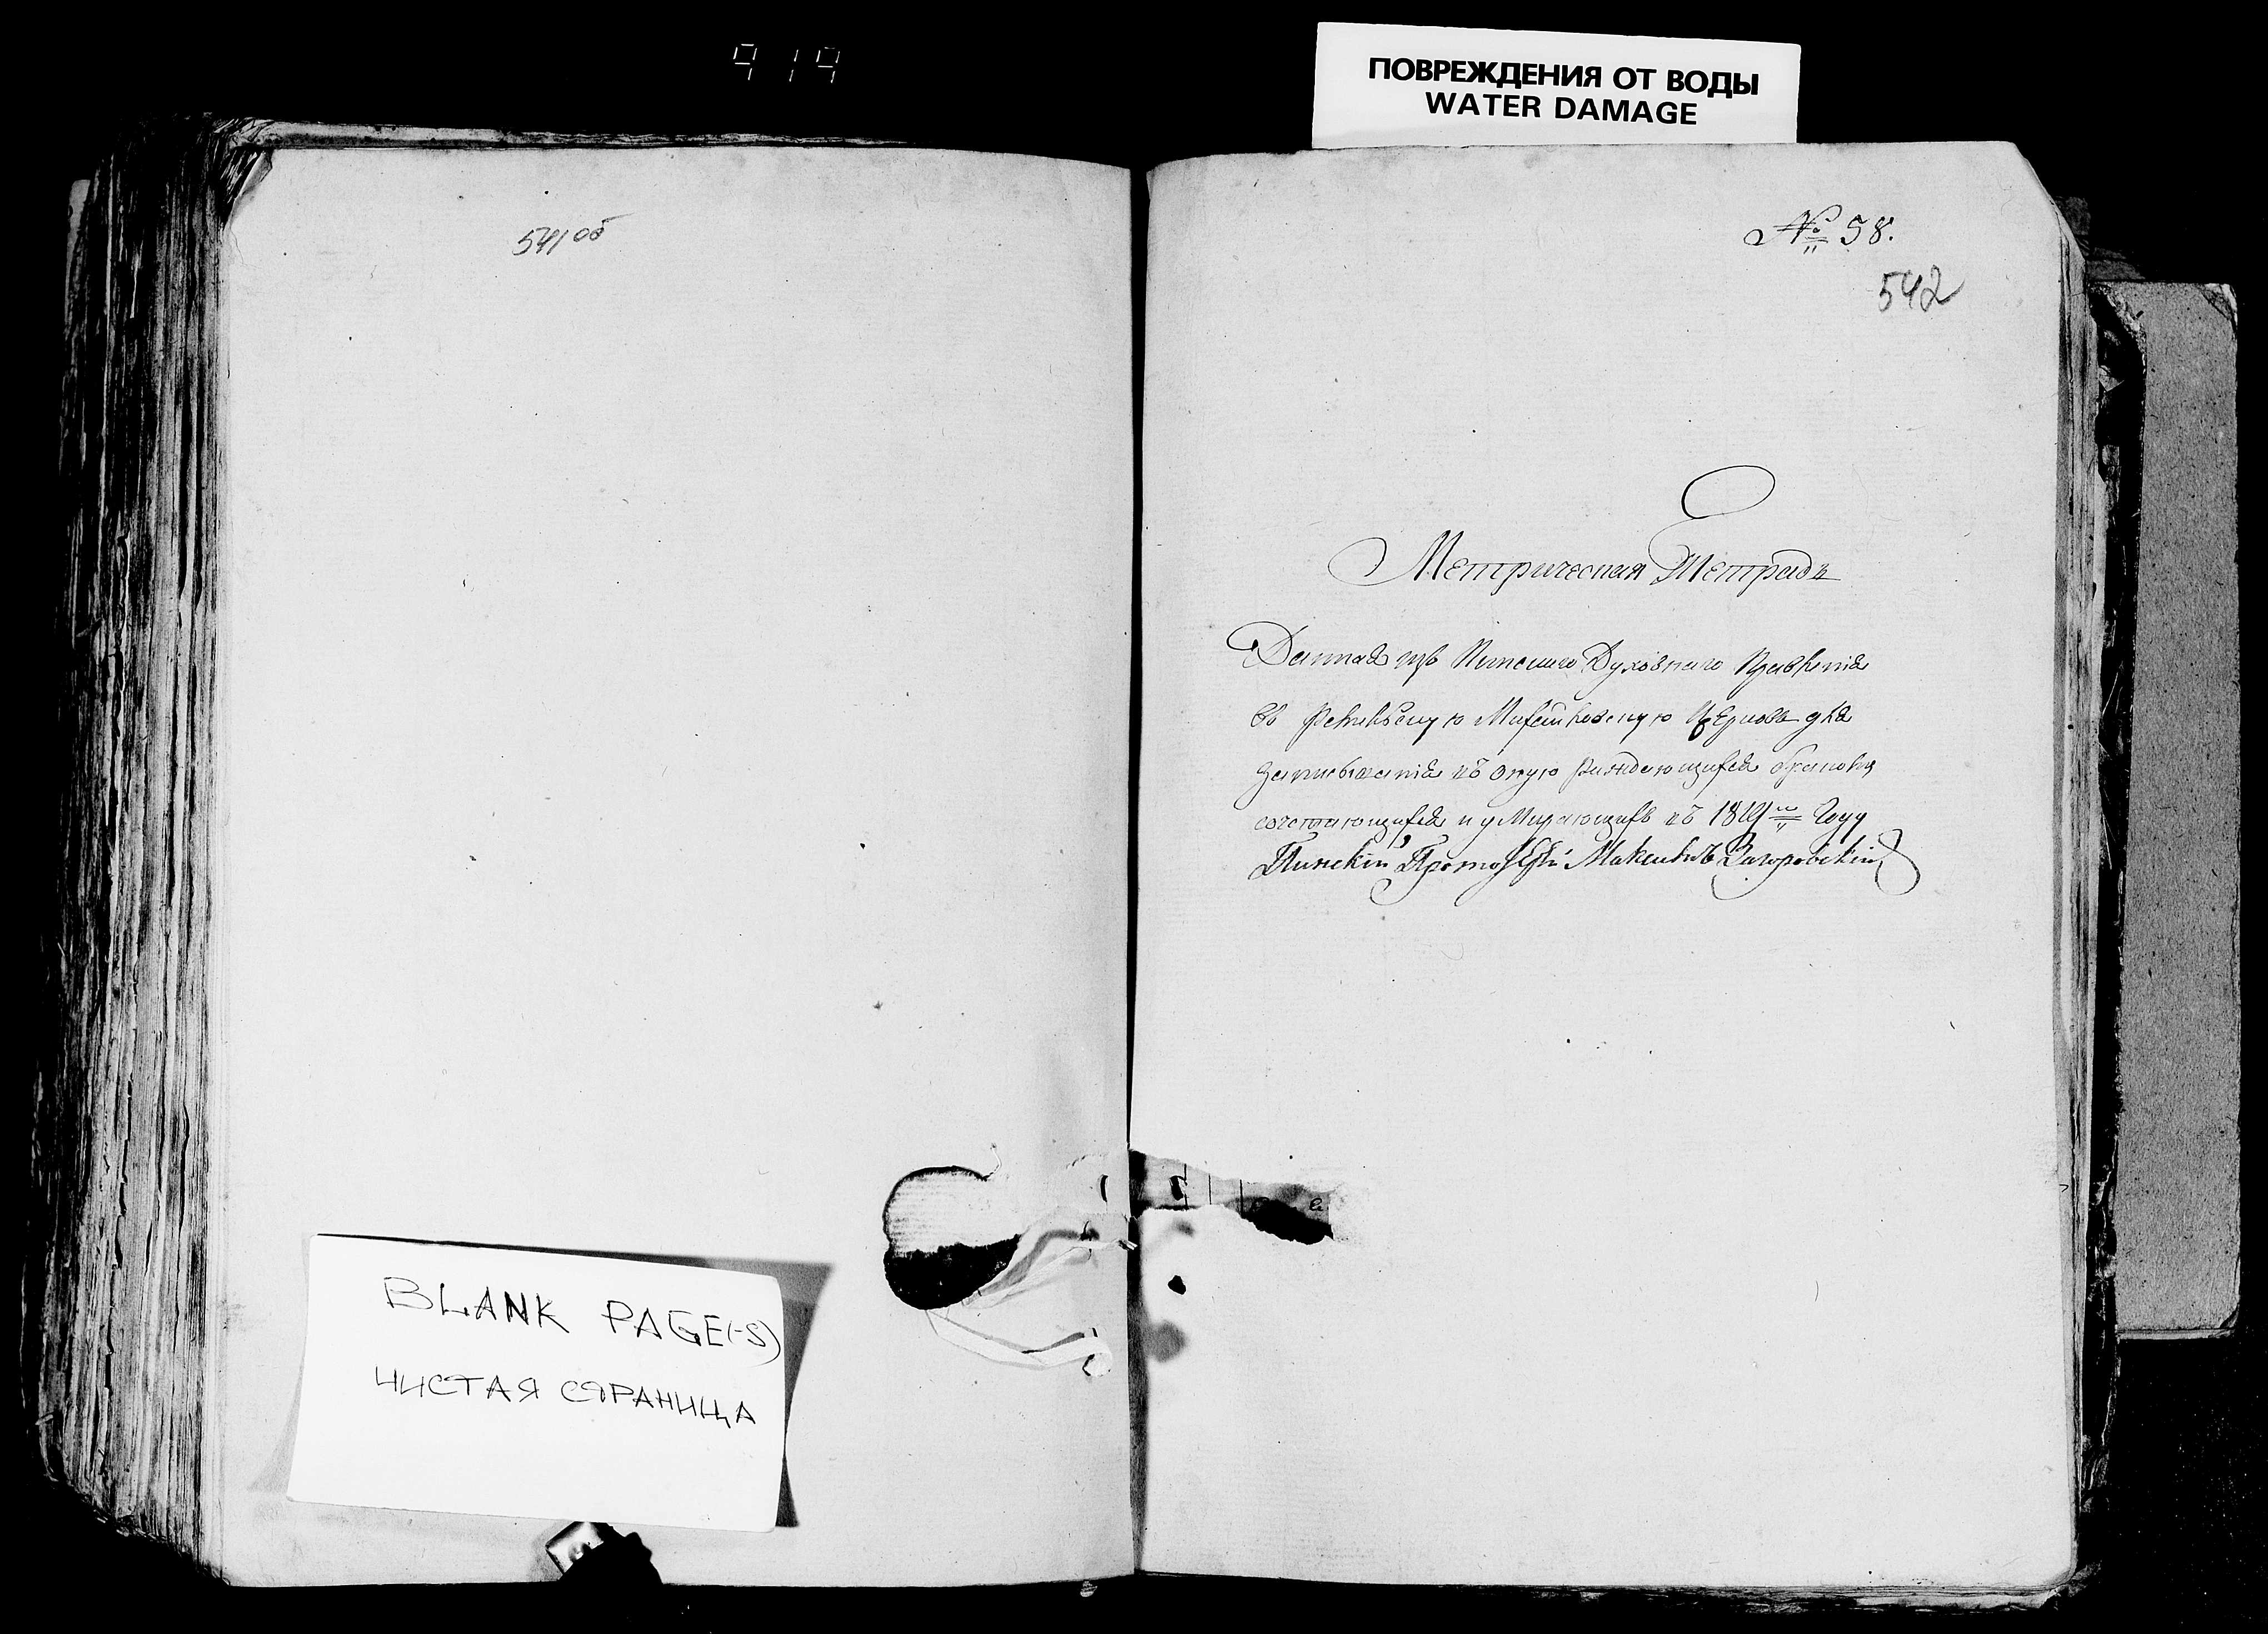 919
ПОВРЕЖДЕНИЯ ОТ ВОДЫ
WATER DAMAGE
541об
№ 58.
542
Метрическая Тетрадь
Данная изъ Пинскаго Духовнаго Правленія
въ церковь для
записыванія въ оную раждающихся бракомъ
сочетающихся и умирающихъ въ году
Пинскій Протоіерей Загоровскій
BLANK PAGE(-S)
ЧИСТАЯ СТРАНИЦА